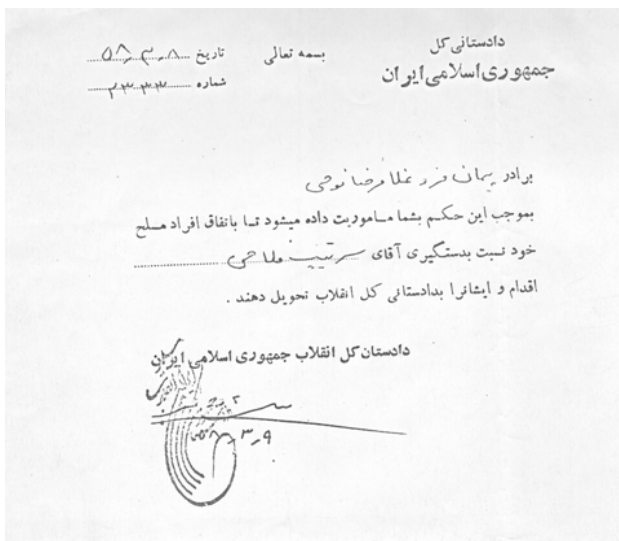 دادستانی کل
جمهوری اسلامی ایران
بسمه تعالی
تاریخ ۵۸-۳-۸
شماره ۲۳۳۳
برادر پیمان فرد غلامرضا نوحی
بموجب این حکم بشما مــاموریت داده میشود تـا باتفاق افراد مسلح
خود نسبت بدستگیری آقای سرتیپ فلاحی
اقدام و ایشانرا بدادستانی کل انقلاب تحویل دهند .
دادستان کل انقلاب جمهوری اسلامی ایران
۵۸-۳-۹